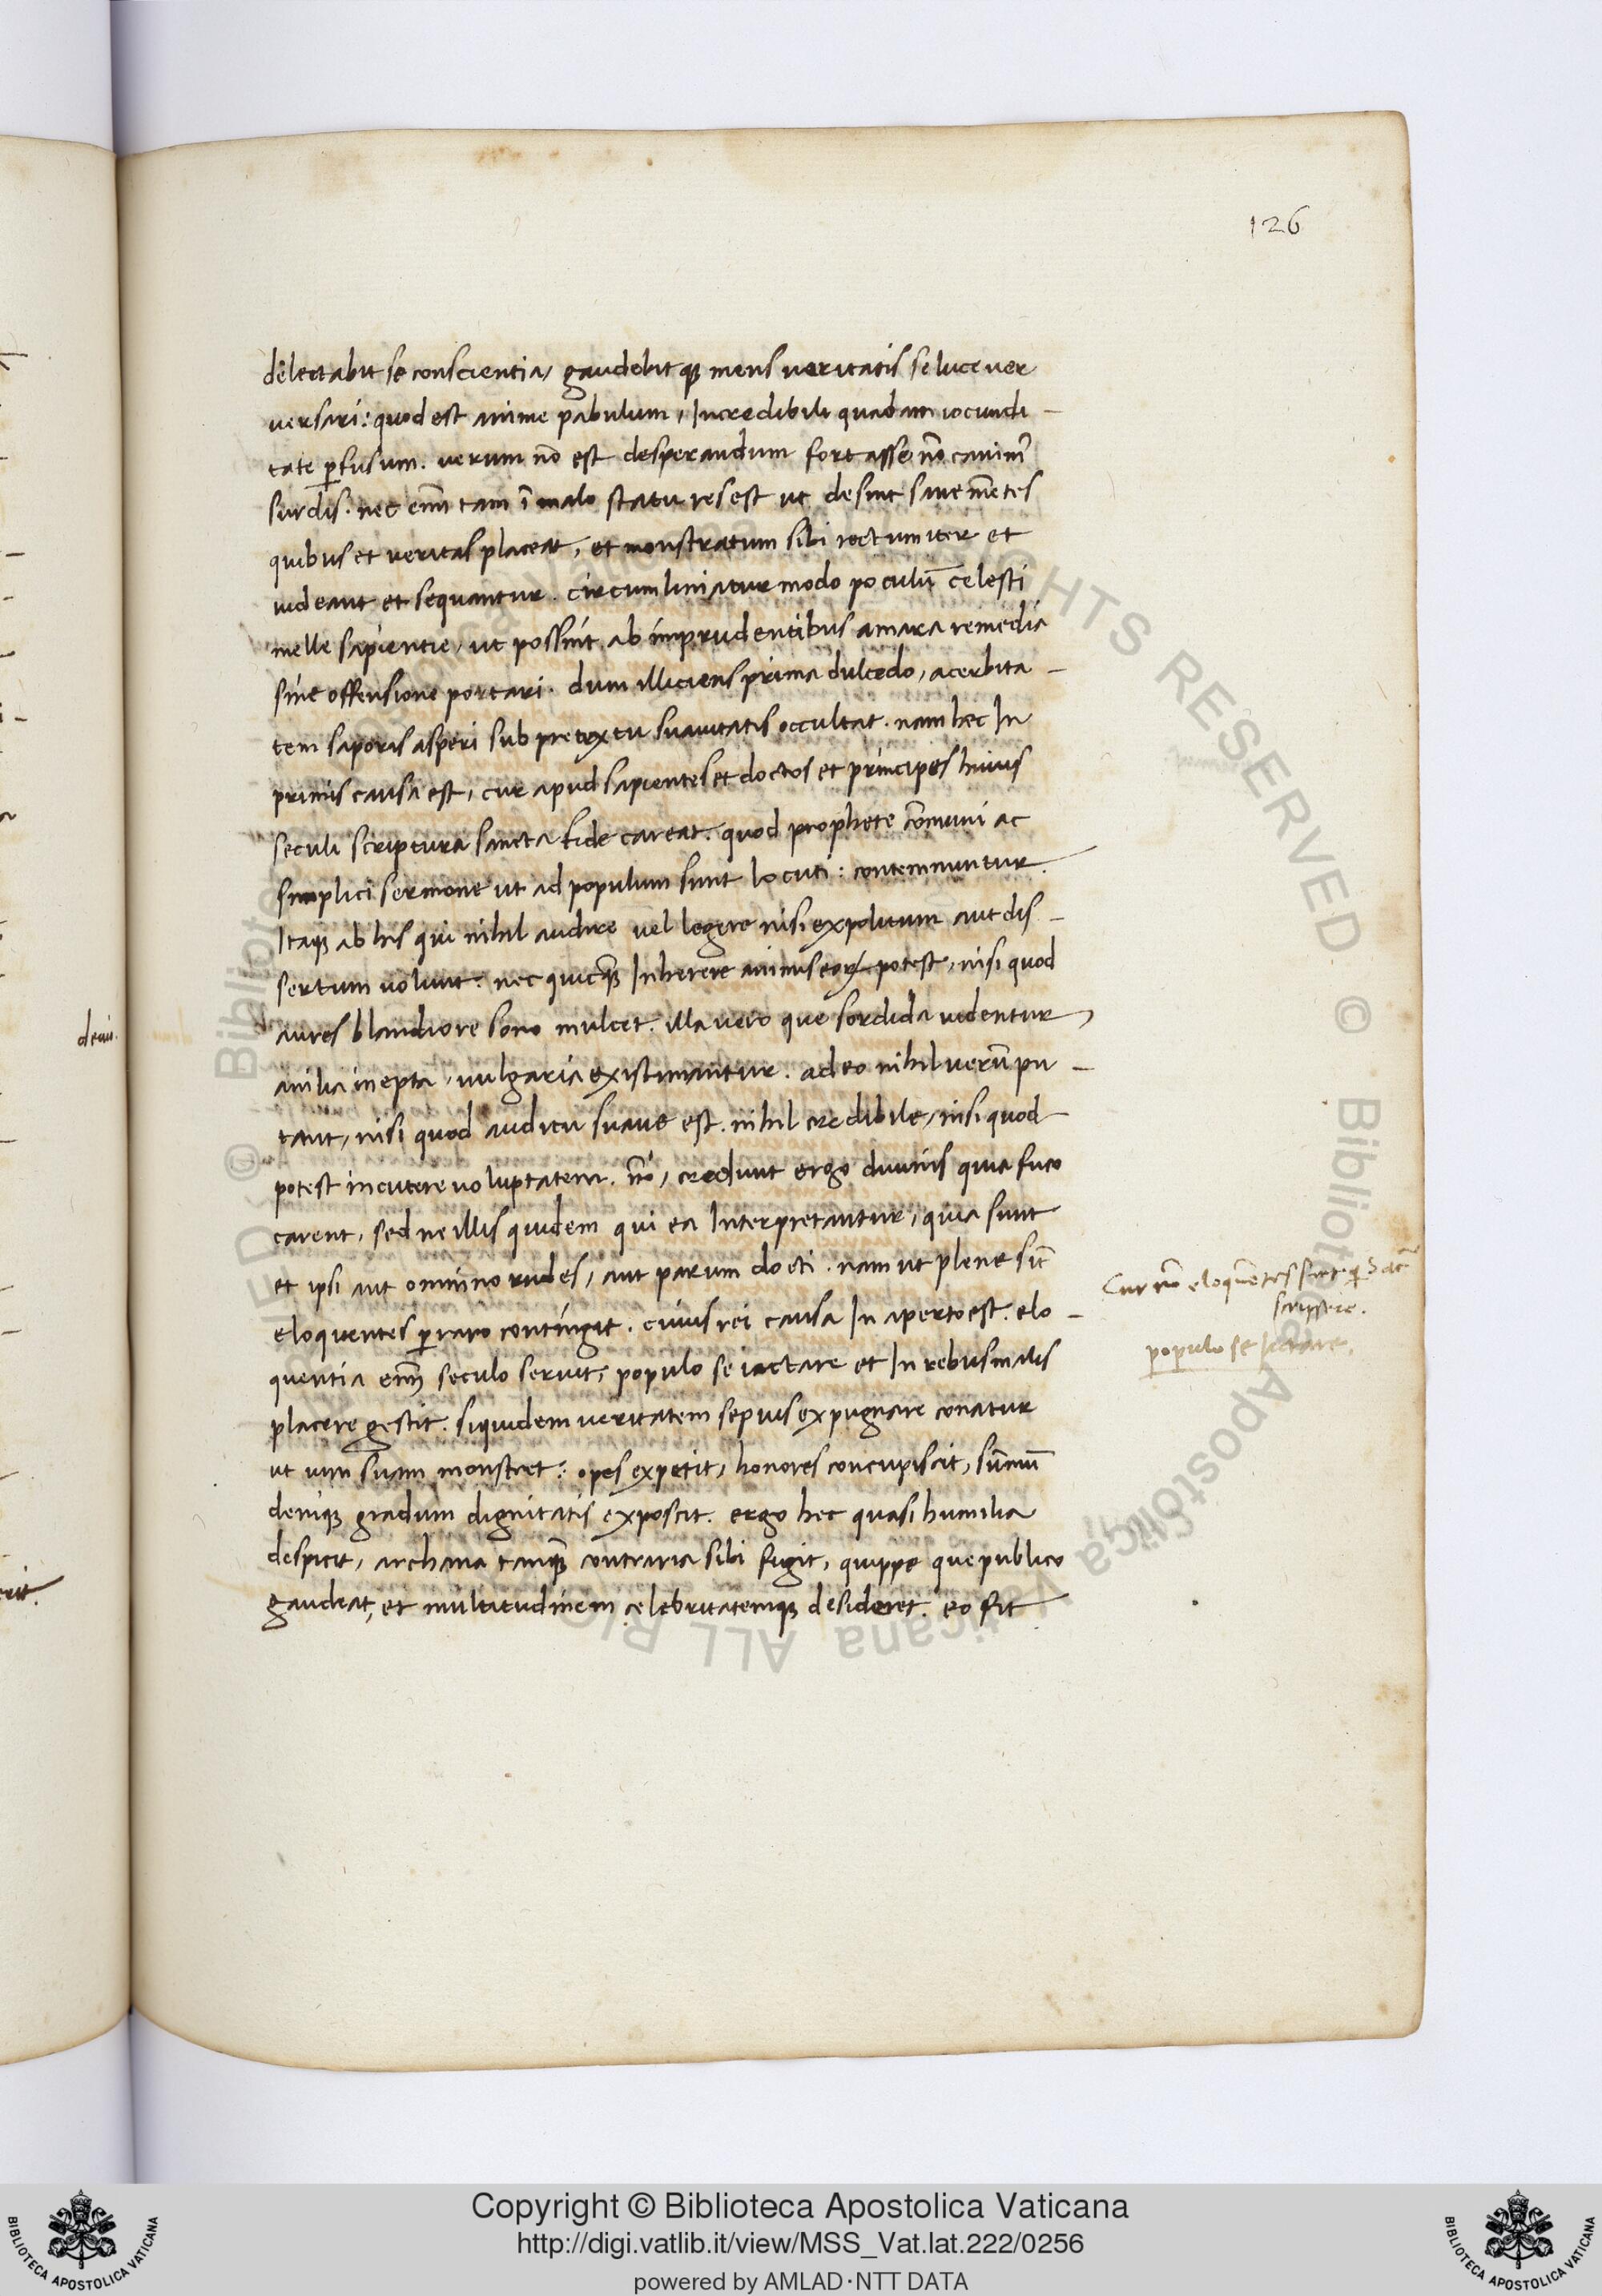 126
delectabit se conscientia, gaudebitq₃ mens veritatis se luce ver
versari: quod est anime pabulum, Incredibili quadam iocundi-
tate ꝑfusum. verum nō est desperandum fortasse nō canimꝰ
surdis. nec eīm tam ī malo statu res est ut desint sane mētes
quibus et veritas placeat, et monstratum sibi rectum iter et
videant et sequantur. circumliniatur modo poculū celesti
melle sapientie, ut possint ab imprudentibus amara remedia
sine offensione portari. dum illiciens prima dulcedo, acerbita-
tem saporis asperi sub pretextu suavitatis occultat. nam hec In
primis causa est, cur apud sapientes et doctos et principes huius
seculi scriptura sancta fide careat. quod prophete cōmuni ac
simplici sermone ut ad populum sunt locuti: contemnuntur.
Itaq₃ ab his qui nihil audire vel legere nisi expolitum aut dis-
sertum volunt. nec quicq̄₃ Inherere animis eoꝝ potest, nisi quod
aures blandiore sono mulcet. illa vero que sordida videntur,
anilia inepta, vulgaria existimantur. adeo nihil verū pu-
tant, nisi quod auditu suave est. nihil credibile, nisi quod
potest incutere voluptatem. nō, credunt ergo divinis quia fuco
carent, sed ne illis quidem qui ea Interpretantur, quia sunt
et ipsi aut omnino rudes, aut parum docti. nam ut plene sīt
eloquentes ꝑraro contingit. cuius rei causa In aperto est. elo-
quentia eīm seculo servit, populo se iactare et In rebus malis
placere gestit. siquidem veritatem sepius expugnare conatur
ut vim suam monstret: opes expetit, honores concupiscit, sūmū
deniq₃ gradum dignitatis exposcit. ergo hec quasi humilia
despicit, archana tamq̄₃ contraria sibi fugit, quippe que publico
gaudeat, et multitudinem celebritatemq₃ desideret. eo fit
Cur nō eloquētes sint q̄ Sac̄
scripsere.
populo se iactare.
devi.
erit.
Copyright © Biblioteca Apostolica Vaticana
http://digi.vatlib.it/view/MSS_Vat.lat.222/0256
powered by AMLAD·NTT DATA
BIBLIOTECA APOSTOLICA VATICANA
BIBLIOTECA APOSTOLICA VATICANA